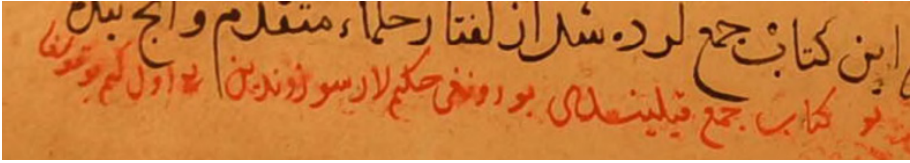 این کتاب جمع کرده شد از گفتار حکماء متقدم و آنچ
بو کتاب جمع قیلینیلدی بورونغی حکیم لار سوزوندین اول کیم